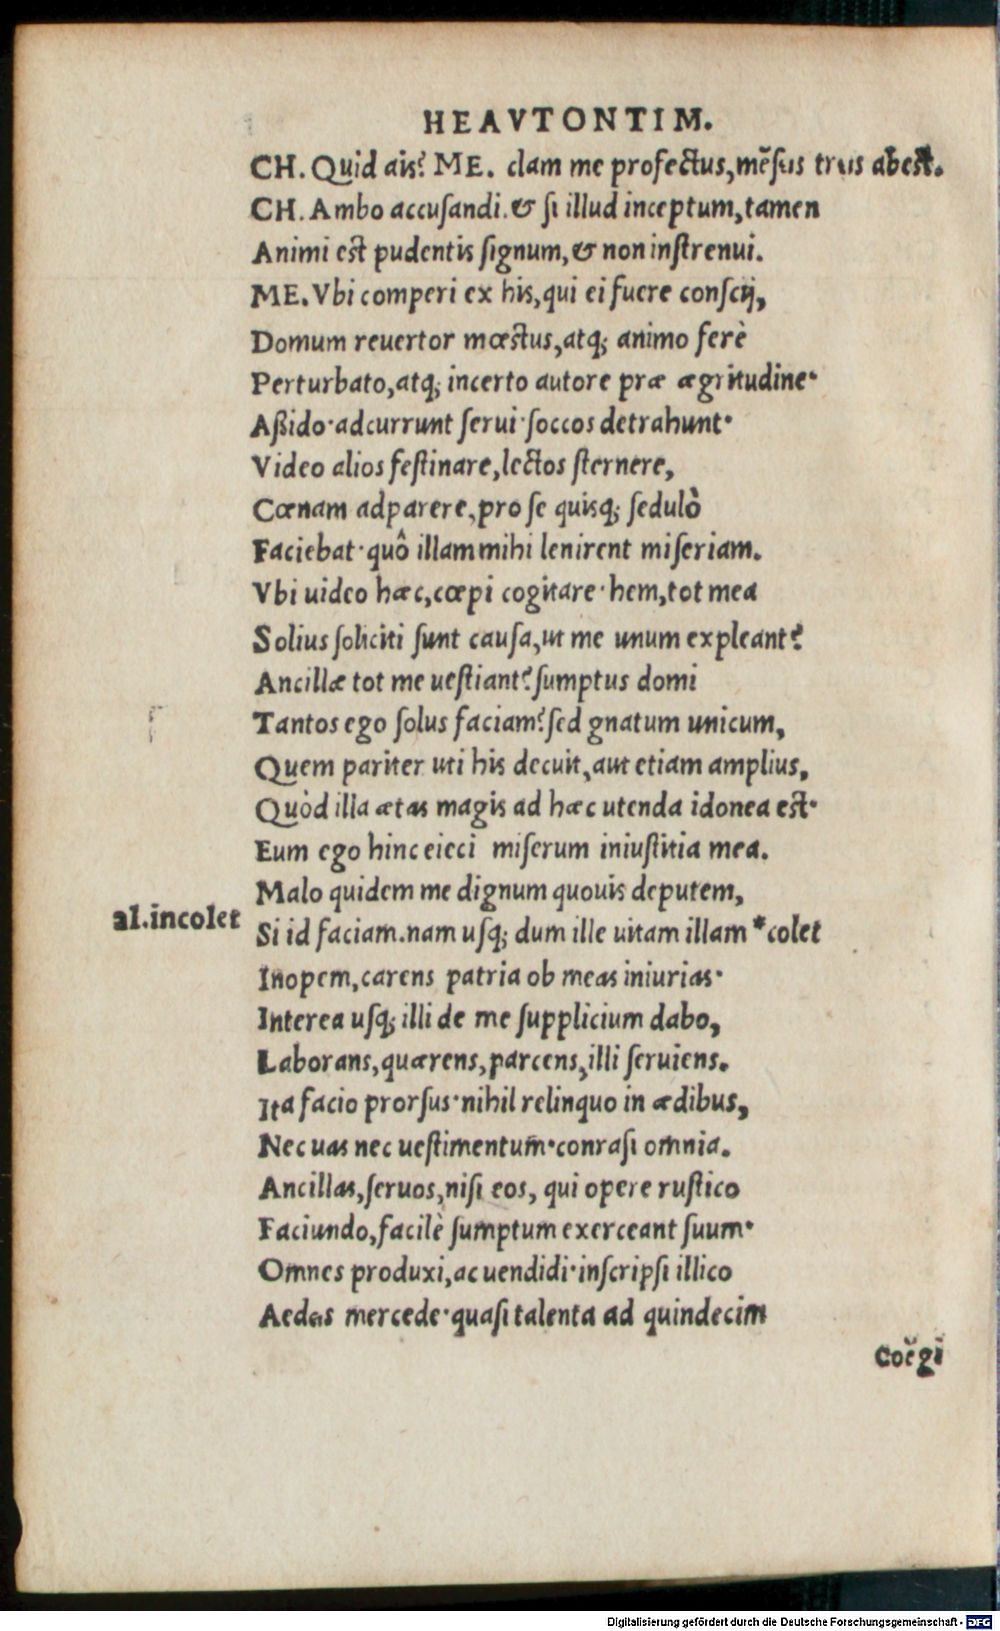 HEAVTONTIM.
CH. Quid ais? ME. clam me profectus, mẽſes treis abest.
CH. Ambo accuſandi. & ſi illud inceptum, tamen
Animi est pudentis ſignum, & non inſtrenui.
ME. Vbi comperi ex his, qui ei fuere conſcij,
Domum reuertor mœstus, atq; animo ferè
Perturbato, atq; incerto autore præ ægritudine·
Aßido·adcurrunt ſerui·ſoccos detrahunt·
Video alios feſtinare, lectos ſternere,
Cœnam adparere, pro ſe quisq; ſedulò
Faciebat·quô illam mihi lenirent miſeriam.
Vbi uideo hæc, cœpi cogitare·hem, tot mea
Solius ſoliciti ſunt cauſa, ut me unum expleant?
Ancillæ tot me ueſtiant? ſumptus domi
Tantos ego ſolus faciam? ſed gnatum unicum,
Quem pariter uti his decuit, aut etiam amplius,
Quòd illa ætas magis ad hæc utenda idonea est·
Eum ego hinc eieci miſerum iniuſtitia mea.
Malo quidem me dignum quouis deputem,
al. incolet
Si id faciam. nam uſq; dum ille uitam illam *colet
Inopem, carens patria ob meas iniurias·
Interea uſq; illi de me ſupplicium dabo,
Laborans, quærens, parcens, illi ſeruiens.
Ita facio prorſus·nihil relinquo in ædibus,
Nec uas nec ueſtimentum·conraſi omnia.
Ancillas, ſeruos, niſi eos, qui opere ruſtico
Faciundo, facilè ſumptum exerceant ſuum·
Omnes produxi, ac uendidi·inſcripſi illico
Aedeis mercede·quaſi talenta ad quindecim
Coëgi
Digitalisierung gefördert durch die Deutsche Forschungsgemeinschaft - DFG